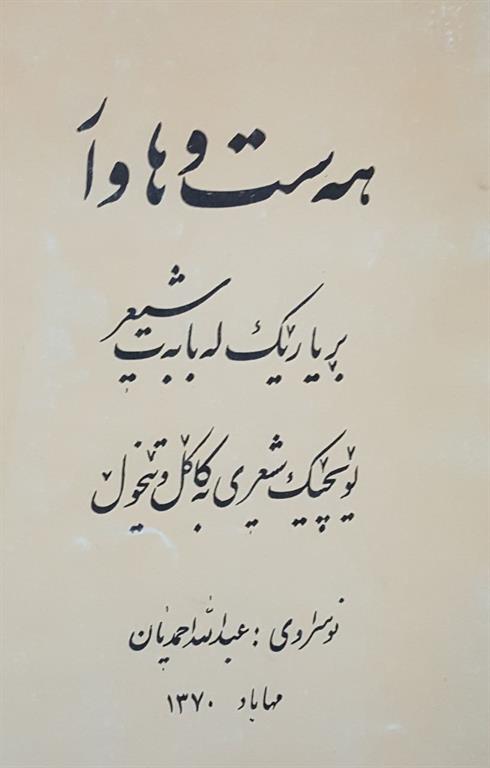 هەست و هاوار
بڕیارێک لە بابەت شیعر
توێچێک شعری بە کاکڵ و تێخوێڵ
نوسراوی : عبدالله احمدیان
مهاباد ۱۳۷۰